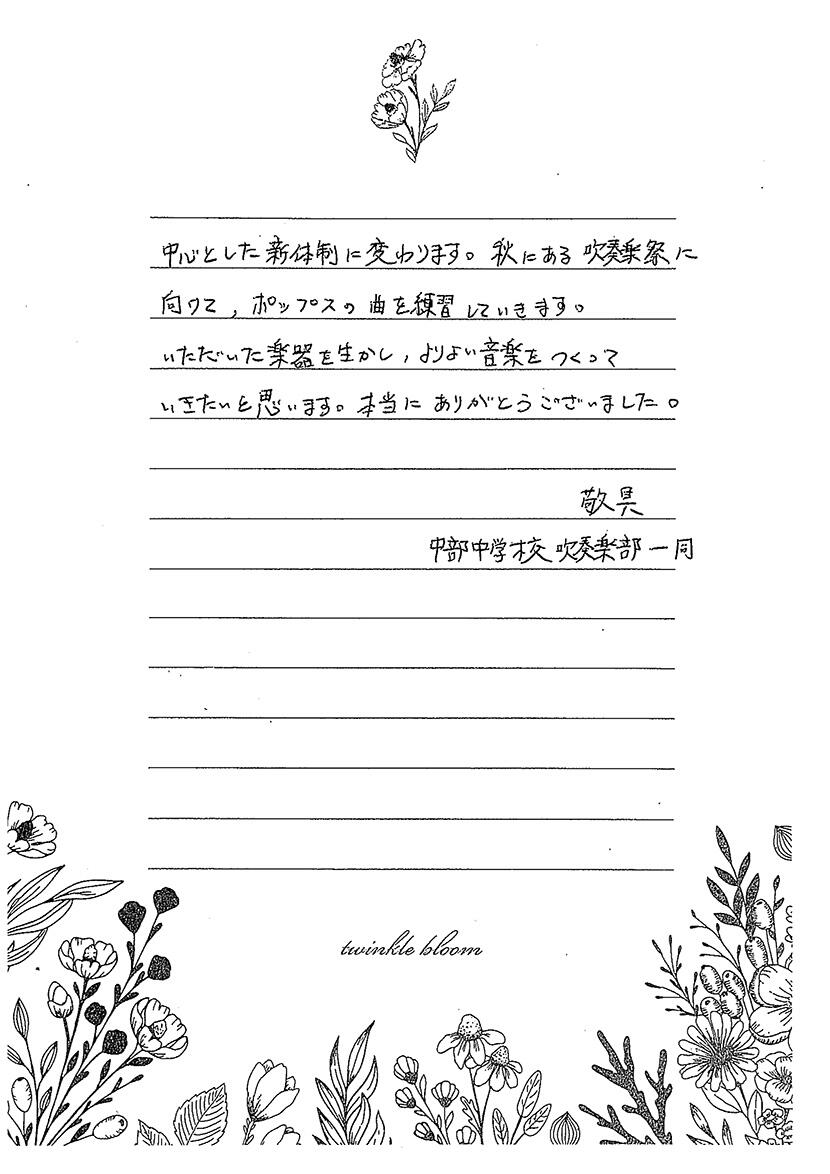 中心とした新体制に変わります。秋にある吹奏楽祭に
向けて、ポップスの曲を練習していきます。
いただいた楽器を生かし、よりよい音楽をつくって
いきたいと思います。本当にありがとうございました。
敬具
中部中学校 吹奏楽部一同
twinkle bloom